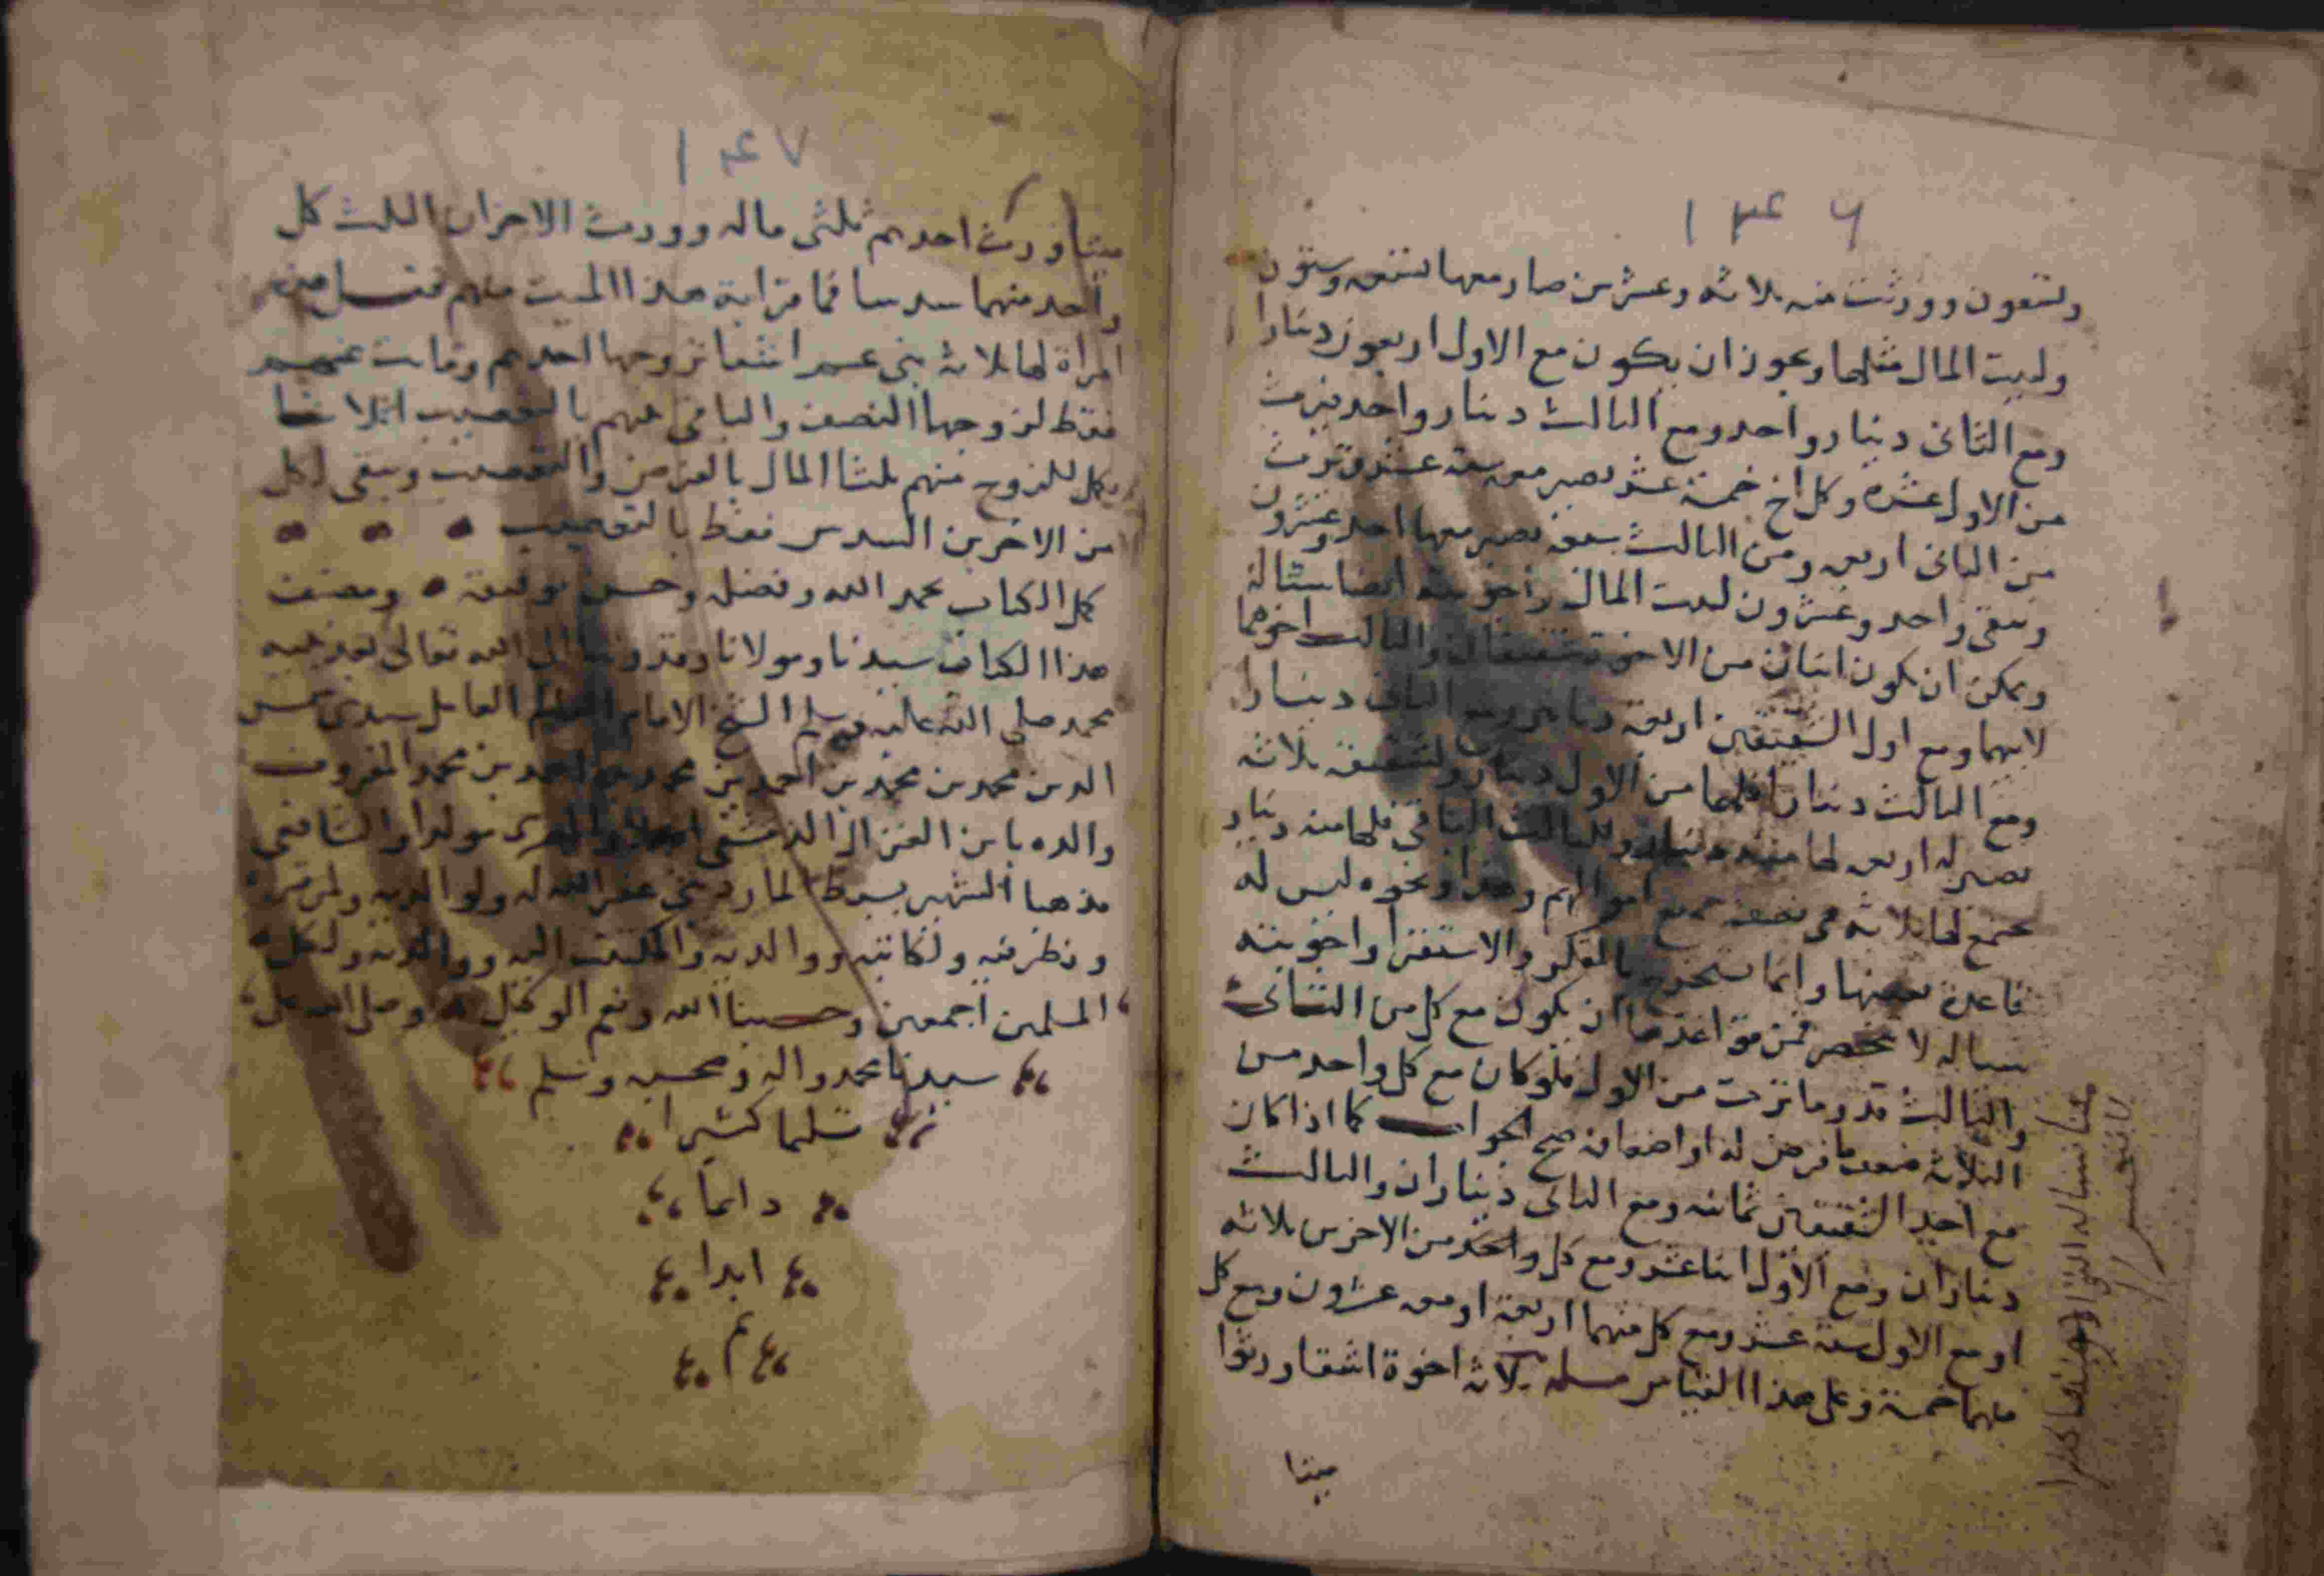 ١٤٦
وتسعون وورثت منه ثلاثه وعشرين صار معها تسعه وستون
ولبيت المال مثلها ويجوز ان يكون مع الاول اربعون دينارا
ومع الثانى دينار واحد ومع الثالث دينار واحد فترث
من الاول عشره وكل اخ خمسة عشر يصير معه ستة عشر وترث
من الثانى اربعه ومن الثالث سبعه يصير معها احد وعشرون
ويبقى واحد وعشرون لبيت المال
ويمكن ان يكون اثنان من الاخوة شقيقان والثالث اخوهما
لابيهما ومع اول الشقيقين اربعة دنانير ومع الثانى دينارا
ومع الثالث دينارا فلها من الاول دينار ولشقيقه ثلاثه
يصير له اربعه لها منه دينار وللثالث الباقى فلها منه دينار
يجتمع لها ثلاثه هى نصف جميع اموالهم وهذا ونحوه ليس له
قاعدة وانما يستخرج بالفكر والاستقرا واجوبته
لا تنحصر فمن قواعدها ان يكون مع كل من الثانى
والثالث قدر ما ترث من الاول فلو كان مع كل واحد من
الثلاثه ضعف ما فرض له او اضعافه صح الجواب كما اذا كان
مع احد الشقيقين ثمانيه ومع الثانى ديناران والثالث
ديناران ومع الاول اثنا عشر ومع كل واحد من الاخرين ثلاثه
او مع الاول ستة عشر ومع كل منهما اربعة او معه عشرون ومع كل
منهما خمسة وعلى هذا القياس مسله ثلاثة اخوة اشقا ورثوا
ميتا
١٤٧
ميتا ورث احدهم ثلثى ماله وورث الاخران الثلث كل
واحد منهما سدسا فما قرابة هذا الميت منهم فقل هى
امراة لها ثلاثة بنى عم اشقا تزوجها احدهم وماتت عنهم
فقط لزوجها النصف والباقى بينهم بالتعصيب اثلاثا
فكل للزوج منهم ثلثا المال بالفرض والتعصيب ويبقى لكل
من الاخرين السدس فقط بالتعصيب
كمل الكتاب بحمد الله وفضله وحسن توفيقه ومصنف
هذا الكتاب سيدنا ومولانا وقدوتنا الى الله تعالى بعد نبيه
محمد صلى الله عليه وسلم الشيخ الامام العالم العامل سيدى شمس
الدين محمد بن محمد بن احمد بن محمد بن احمد بن محمد المعروف
والده بابن الغزال الدمشقى اصلا والمصرى مولدا والشافعى
مذهبا الشهير بسبط الماردينى غفر الله له ولوالديه ولمن
ونظر فيه ولكاتبه ووالديه والمكتتب اليه ووالديه ولكل
المسلمين اجمعين وحسبنا الله ونعم الوكيل وصلى الله على
سيدنا محمد واله وصحبه وسلم
تسليما كثيرا
دائما
ابدا
تم